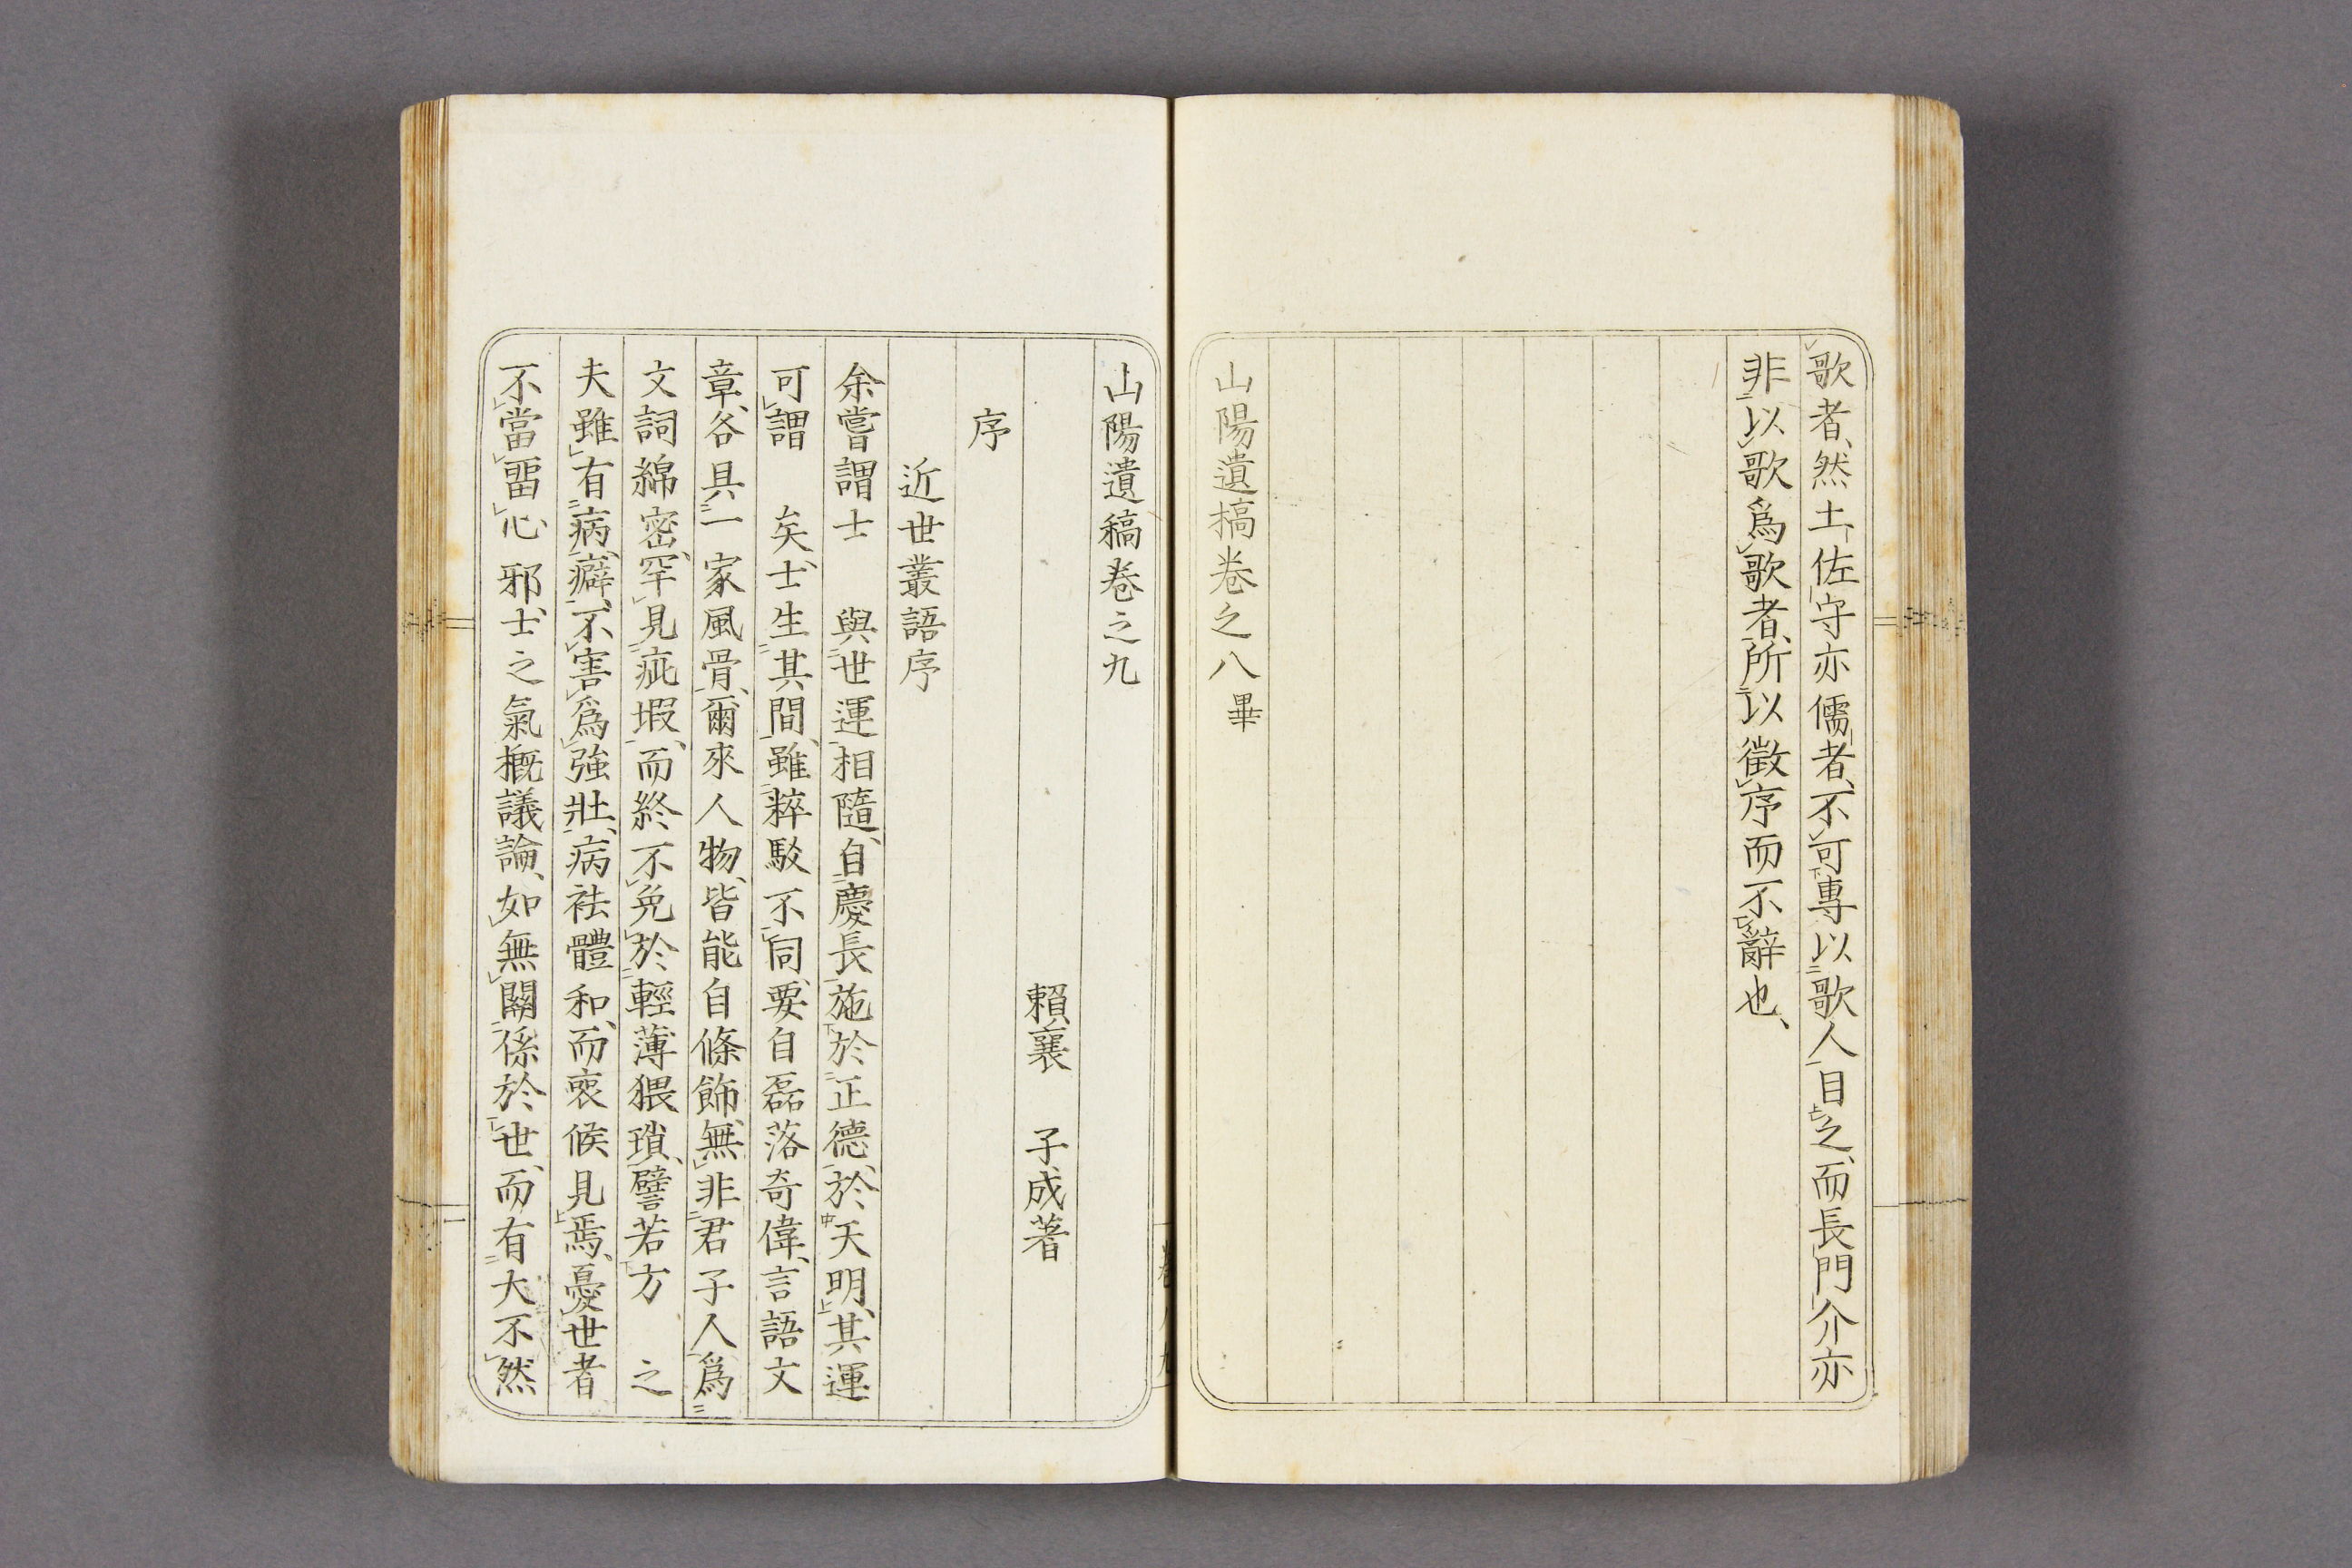 歌者、然土佐守亦儒者、不可專以歌人目之、而長門介亦
非以歌爲歌者、所以徵序而不辭也、
山陽遺稿卷之八畢
山陽遺稿卷之九
賴襄　子成著
序
近世叢語序
余嘗謂士　與世運相隨、自慶長施於正德、於天明、其運
可謂　矣、士生其間、雖粹駁不同、要自磊落奇偉、言語文
章、各具一家風骨、爾來人物、皆能自條飾、無非君子人、爲
文詞綿密、罕見疵瑕、而終不免於輕薄猥瑣、譬若方　之
夫雖有病癖、不害爲強壯、病袪體和、而衰候見焉、憂世者
不當畱心邪、士之氣概議論、如無關係於世、而有大不然